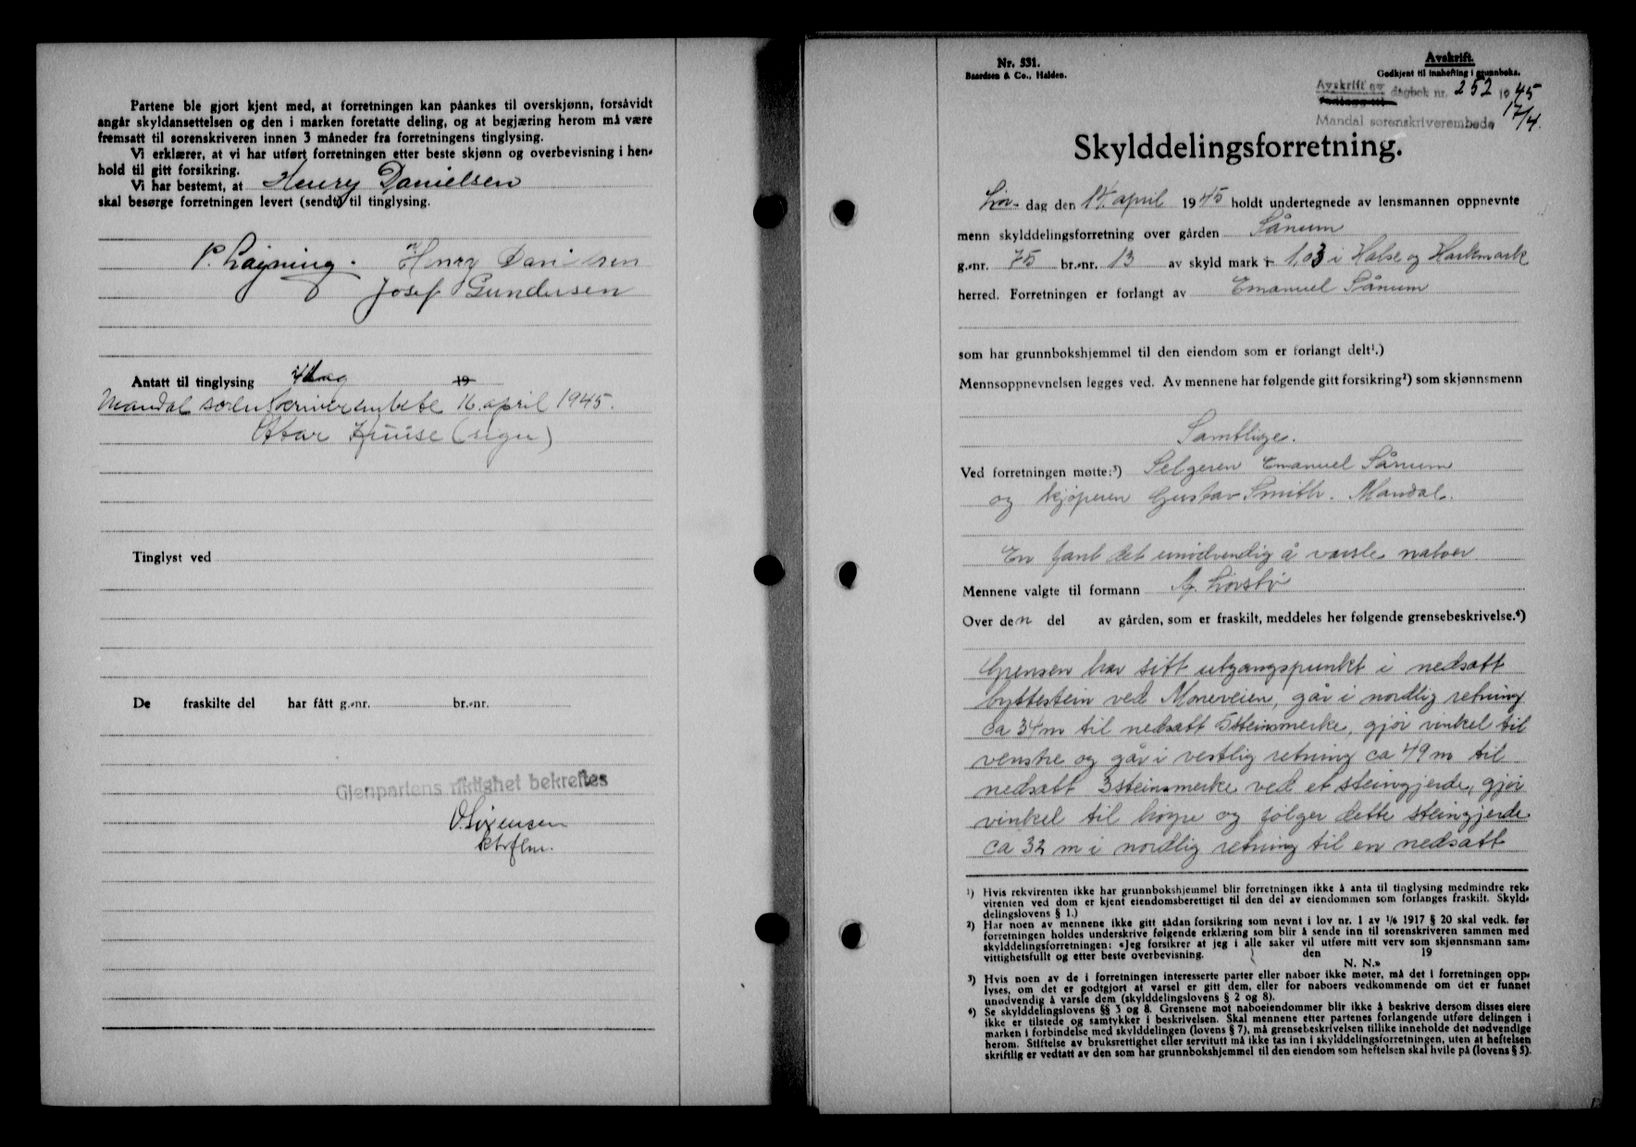 Partene ble gjort kjent med, at forretningen kan påankes til overskjønn, forsåvidt
angår skyldansettelsen og den i marken foretatte deling, og at begjæring herom må være
fremsatt til sorenskriveren innen 3 måneder fra forretningens tinglysing.
Vi erklærer, at vi har utført forretningen etter beste skjønn og overbevisning i hen-
hold til gitt forsikring.
Vi har bestemt, at Henry Danielsen
skal besørge forretningen levert (sendt) til tinglysing.
Henry Danielsen
Josef Gundersen
Antatt til tinglysing 19
Mandal sorenskriverembete 16. april 1945.
Ottar Kruse (sign)
Tinglyst ved
De fraskilte del har fått g.-nr. br.-nr.
Gjenpartens riktighet bekreftes
Nr. 531.
Baardsen & Co., Halden.
Avskrift.
Godkjent til innhefting i grunnboka.
Avskrift av dagbok nr. 252 1945
17/4.
Mandal sorenskriverembede
Skylddelingsforretning.
Lør- dag den 14. april 1945 holdt undertegnede av lensmannen oppnevnte
menn skylddelingsforretning over gården Sånum
g.-nr. 75 br.-nr. 13 av skyld mark 1,03 i Halse og Harkmark
herred. Forretningen er forlangt av Emanuel Sånum
som har grunnbokshjemmel til den eiendom som er forlangt delt¹.)
Mennsoppnevnelsen legges ved. Av mennene har følgende gitt forsikring²) som skjønnsmenn
Samtlige.
Ved forretningen møtte:³) Selgeren Emanuel Sånum
og kjøperen Gustav Smith. Mandal.
En fant det unødvendig å varsle naboer
Mennene valgte til formann
Over den del av gården, som er fraskilt, meddeles her følgende grensebeskrivelse.⁴)
Grensen har sitt utgangspunkt i nedsatt
byttestein ved Moneveien, går i nordlig retning
ca 34 m til nedsatt 5steinsmerke, gjør vinkel til
venstre og går i vestlig retning ca 49 m til
nedsatt 3steinsmerke ved et steingjerde, gjør
vinkel til høyre og følger dette steingjerde
ca 32 m i nordlig retning til en nedsatt
¹) Hvis rekvirenten ikke har grunnbokshjemmel blir forretningen ikke å anta til tinglysing medmindre rek-
virenten ved dom er kjent eiendomsberettiget til den del av eiendommen som forlanges fraskilt. Skyld-
delingslovens § 1.)
²) Har noen av mennene ikke gitt sådan forsikring som nevnt i lov nr. 1 av 1/6 1917 § 20 skal vedk. før
forretningen holdes underskrive følgende erklæring som blir å sende inn til sorenskriveren sammen med
skylddelingsforretningen: «Jeg forsikrer at jeg i alle saker vil utføre mitt verv som skjønnsmann sam-
vittighetsfullt og etter beste overbevisning. den 19
N. N.»
³) Hvis noen av de i forretningen interesserte parter eller naboer ikke møter, må det i forretningen opp-
lyses, om det er godtgjort at varsel er gitt dem, eller for naboers vedkommende om det er funnet
unødvendig å varsle dem (skylddelingslovens § 2 og 8).
⁴) Se skylddelingslovens §§ 3 og 8. Grensene mot naboeiendommer blir ikke å beskrive dersom disses eiere
ikke er tilstede og samtykker i beskrivelsen. Skal mennene etter partenes forlangende utføre delingen i
marken i forbindelse med skylddelingen (lovens § 7), må grensebeskrivelsen tillike inneholde det nødvendige
herom. Stiftelse av bruksrettighet eller servitutt må ikke tas inn i skylddelingsforretningen, uten at heftelsen
skriftlig er vedtatt av den som har grunnbokshjemmel til den eiendom som heftelsen skal hvile på (lovens § 5).